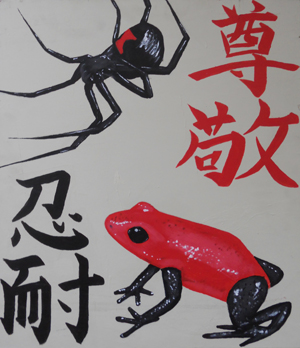 尊敬
忍耐